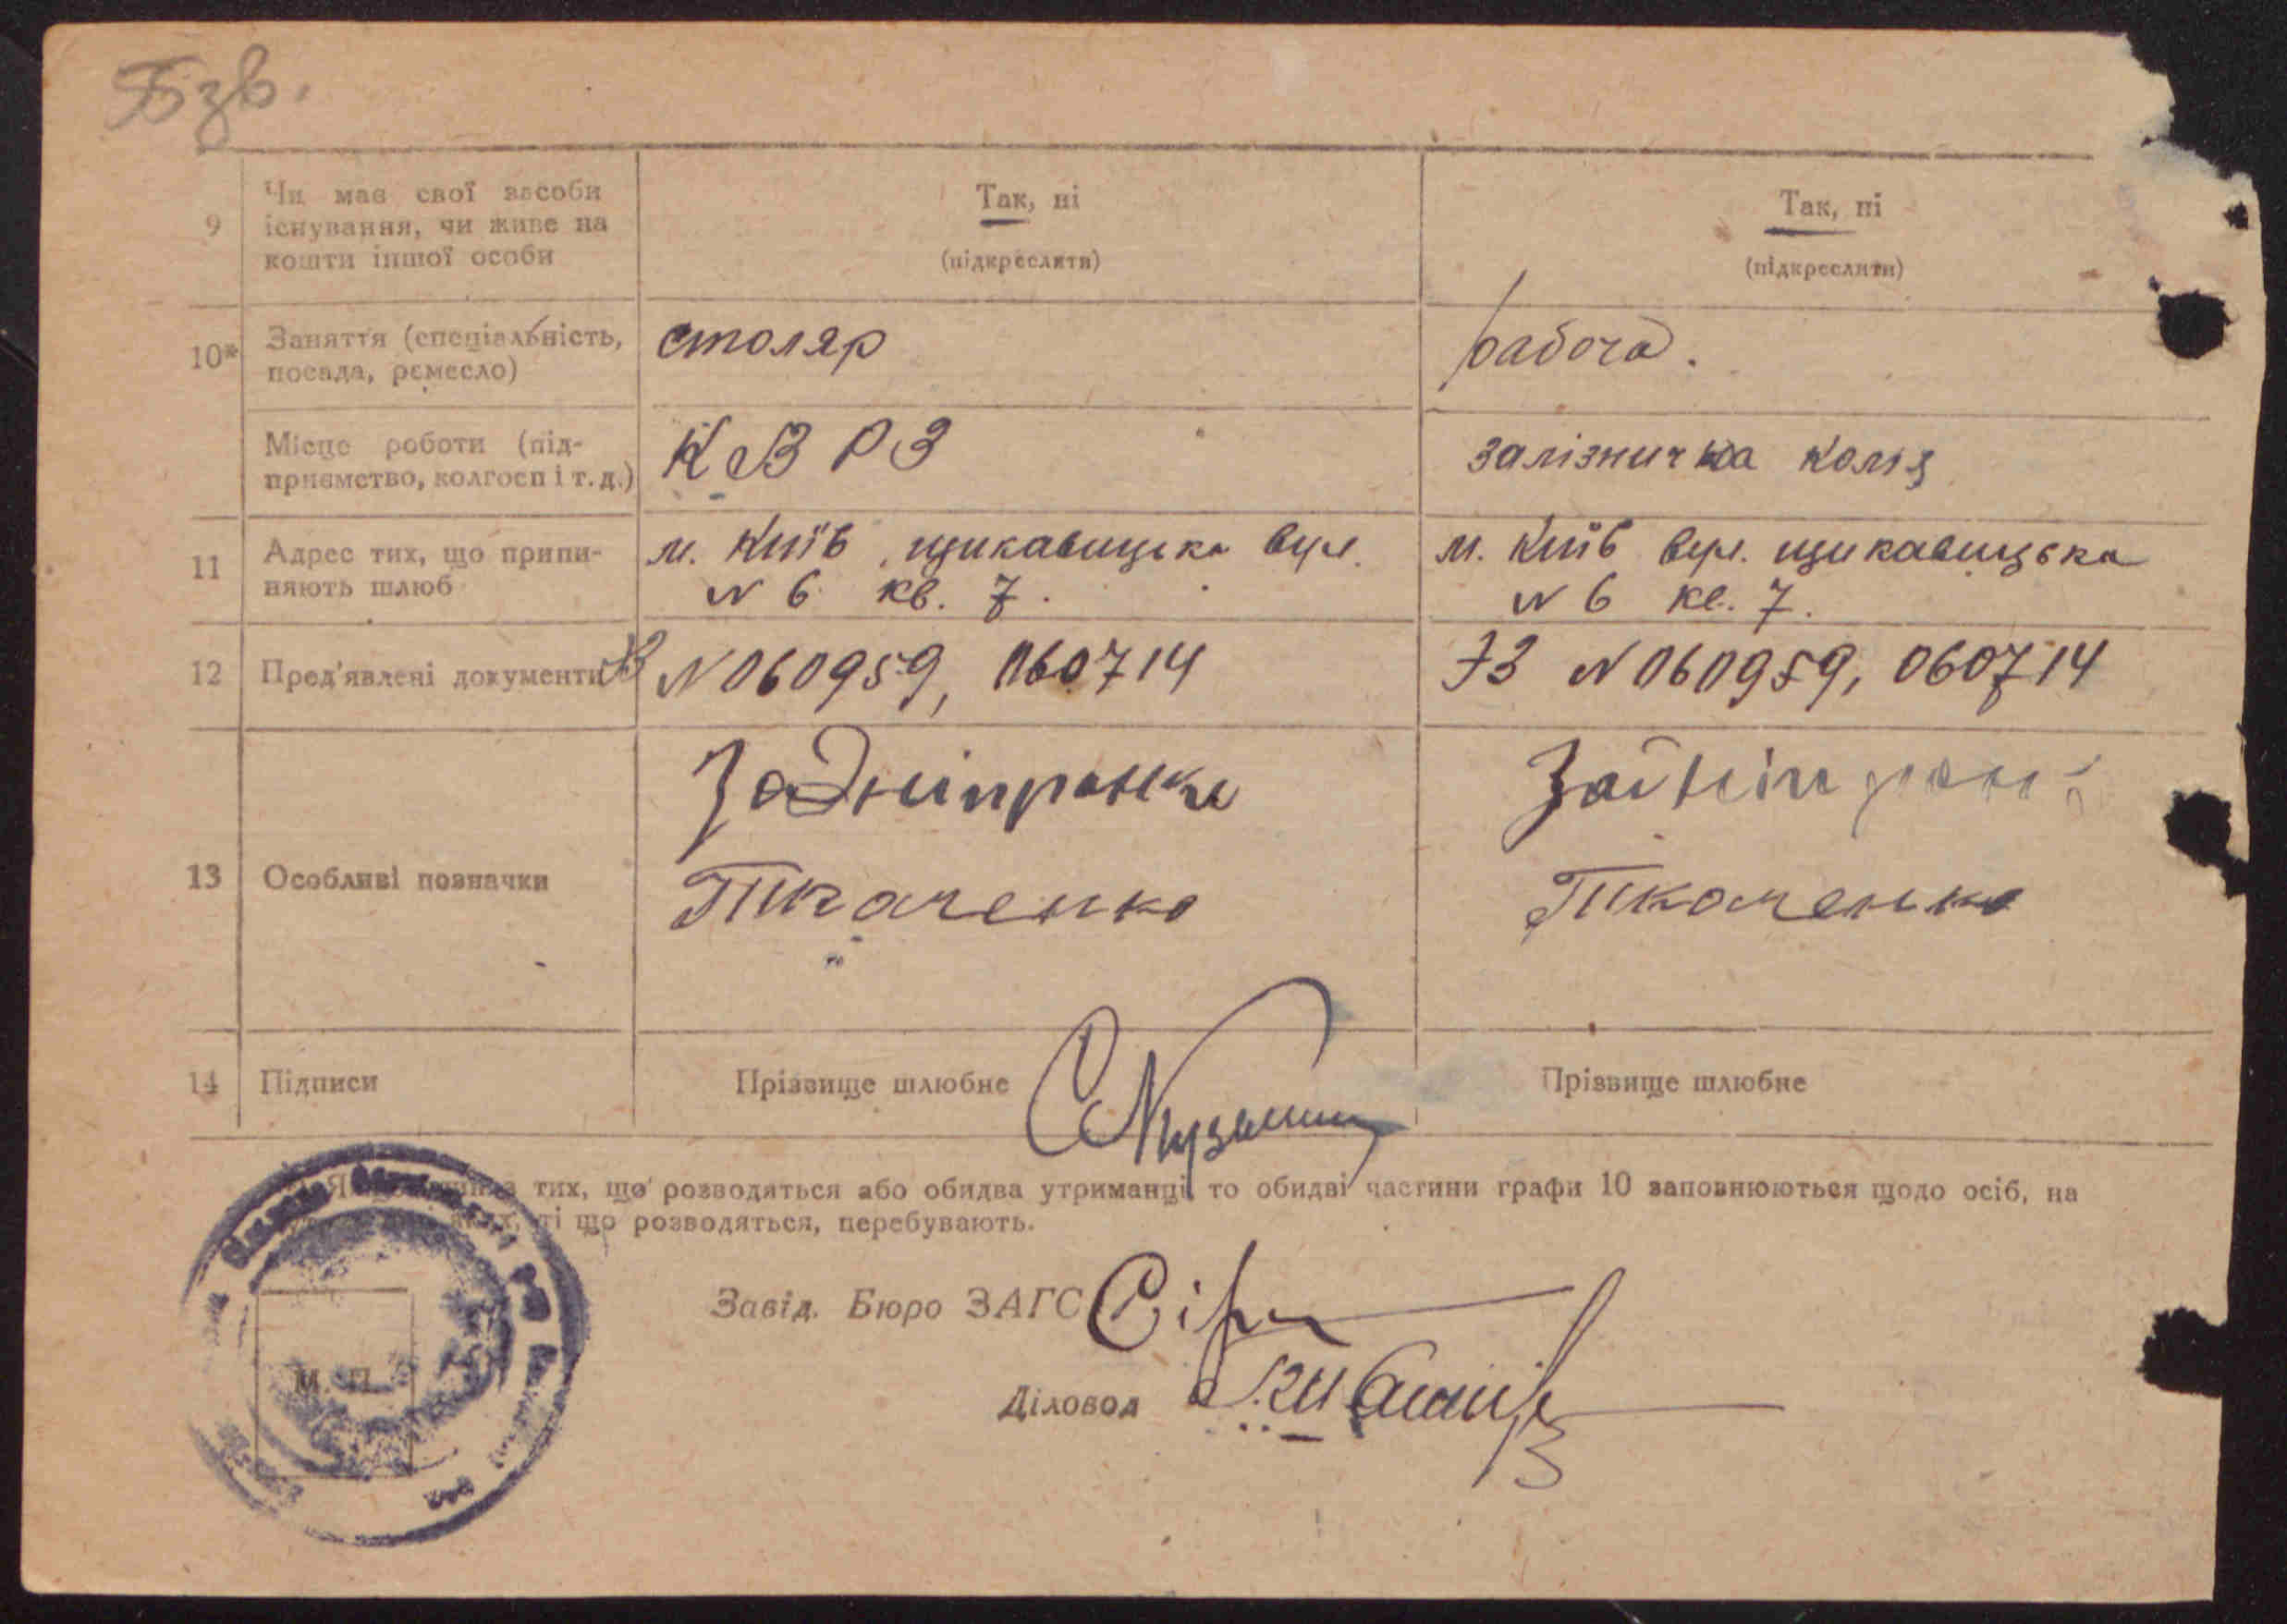 Бзв.
9 Чи має свої засоби існування, чи живе на кошти іншої особи
Так, ні
(підкреслити)
Так, ні
(підкреслити)
10* Заняття (спеціальність, посада, ремесло)
столяр
рабоча.
Місце роботи (підприємство, колгосп і т. д.)
КВРЗ
залізнична колія
11 Адрес тих, що припиняють шлюб
м. Київ, щикавицька вул.
N 6 кв. 7.
м. Київ вул. щикавицька
N 6 кв. 7.
12 Пред'явлені документи
N 060959, 060714
N 060959, 060714
13 Особливі позначки
Задніпранка
Ткаченко
Ткаченко
14 Підписи
Прізвище шлюбне
Прізвище шлюбне
тих, що розводяться або обидва утриманці, то обидві частини графи 10 заповнюються щодо осіб, на
ті що розводяться, перебувають.
Завід. Бюро ЗАГС
Діловод
М. П.